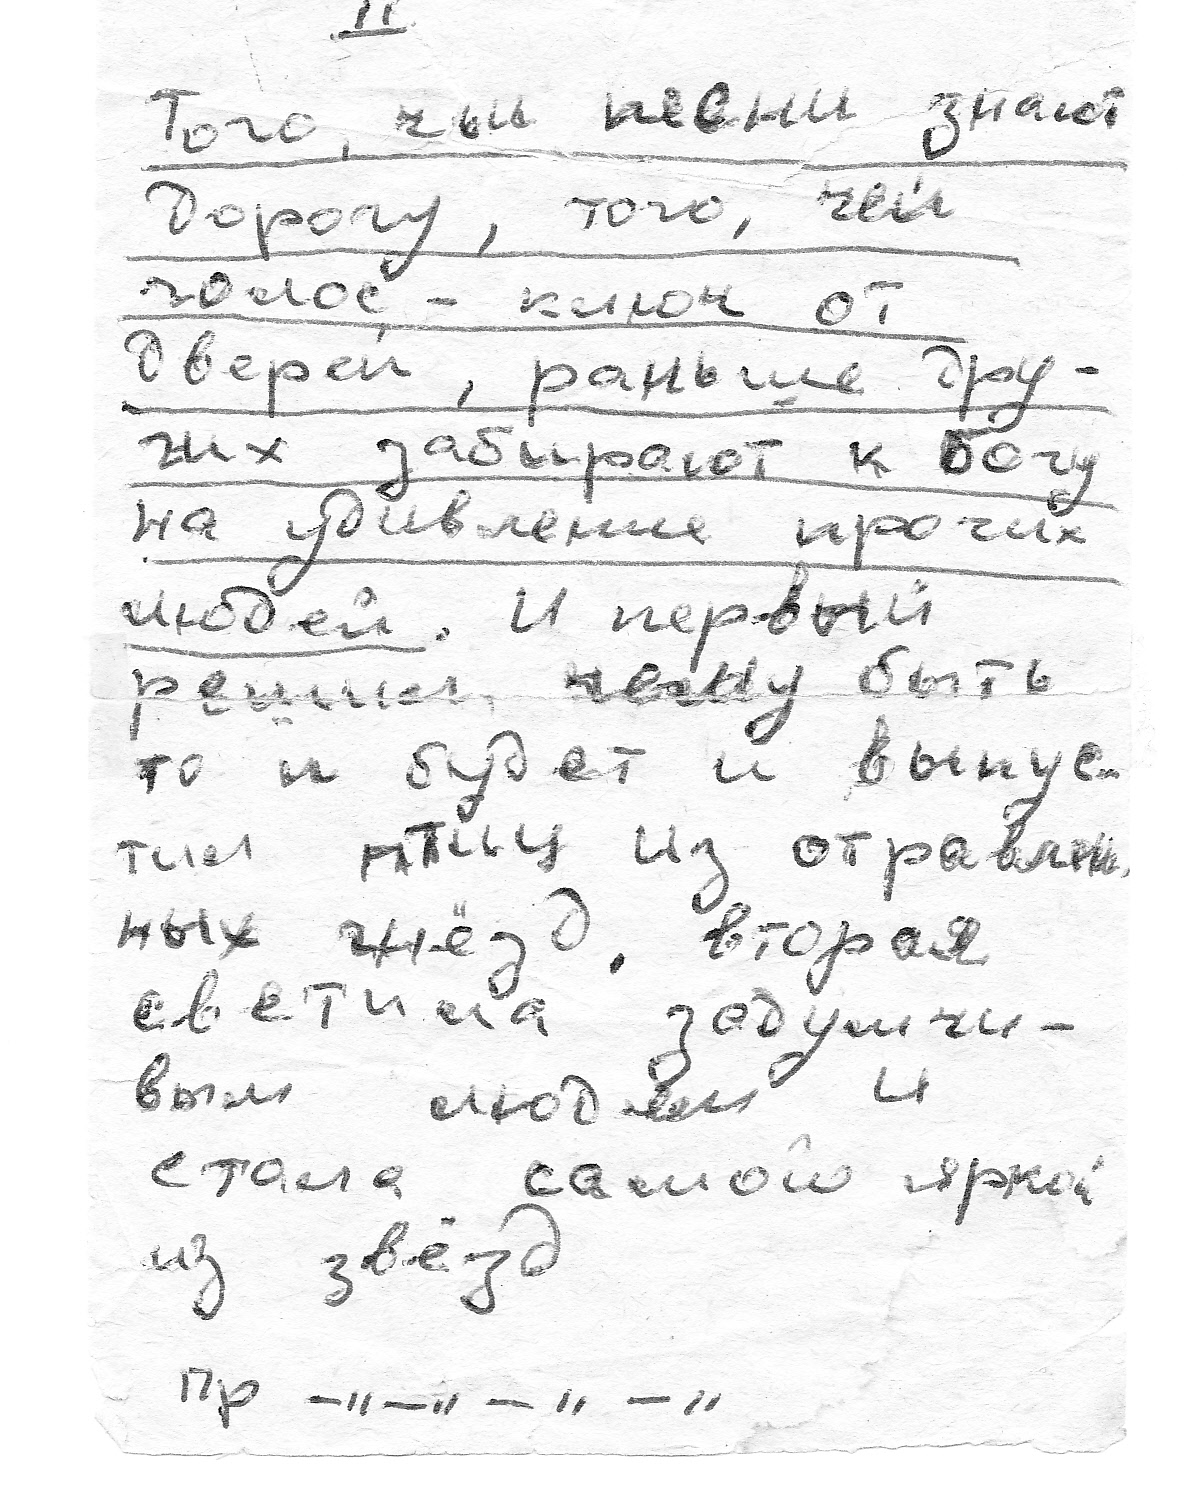 II
Того, чьи песни знают
дорогу, того, чей
голос - ключ от
дверей, раньше дру-
гих забирают к богу
на удивление прочих
людей. И первый
решил, чему быть
то и будет и выпус-
тил птиц из отравлен-
ных гнёзд, вторая
светила задумчи-
вым людям и
стала самой яркой
из звёзд
Пр -"-"-"-"